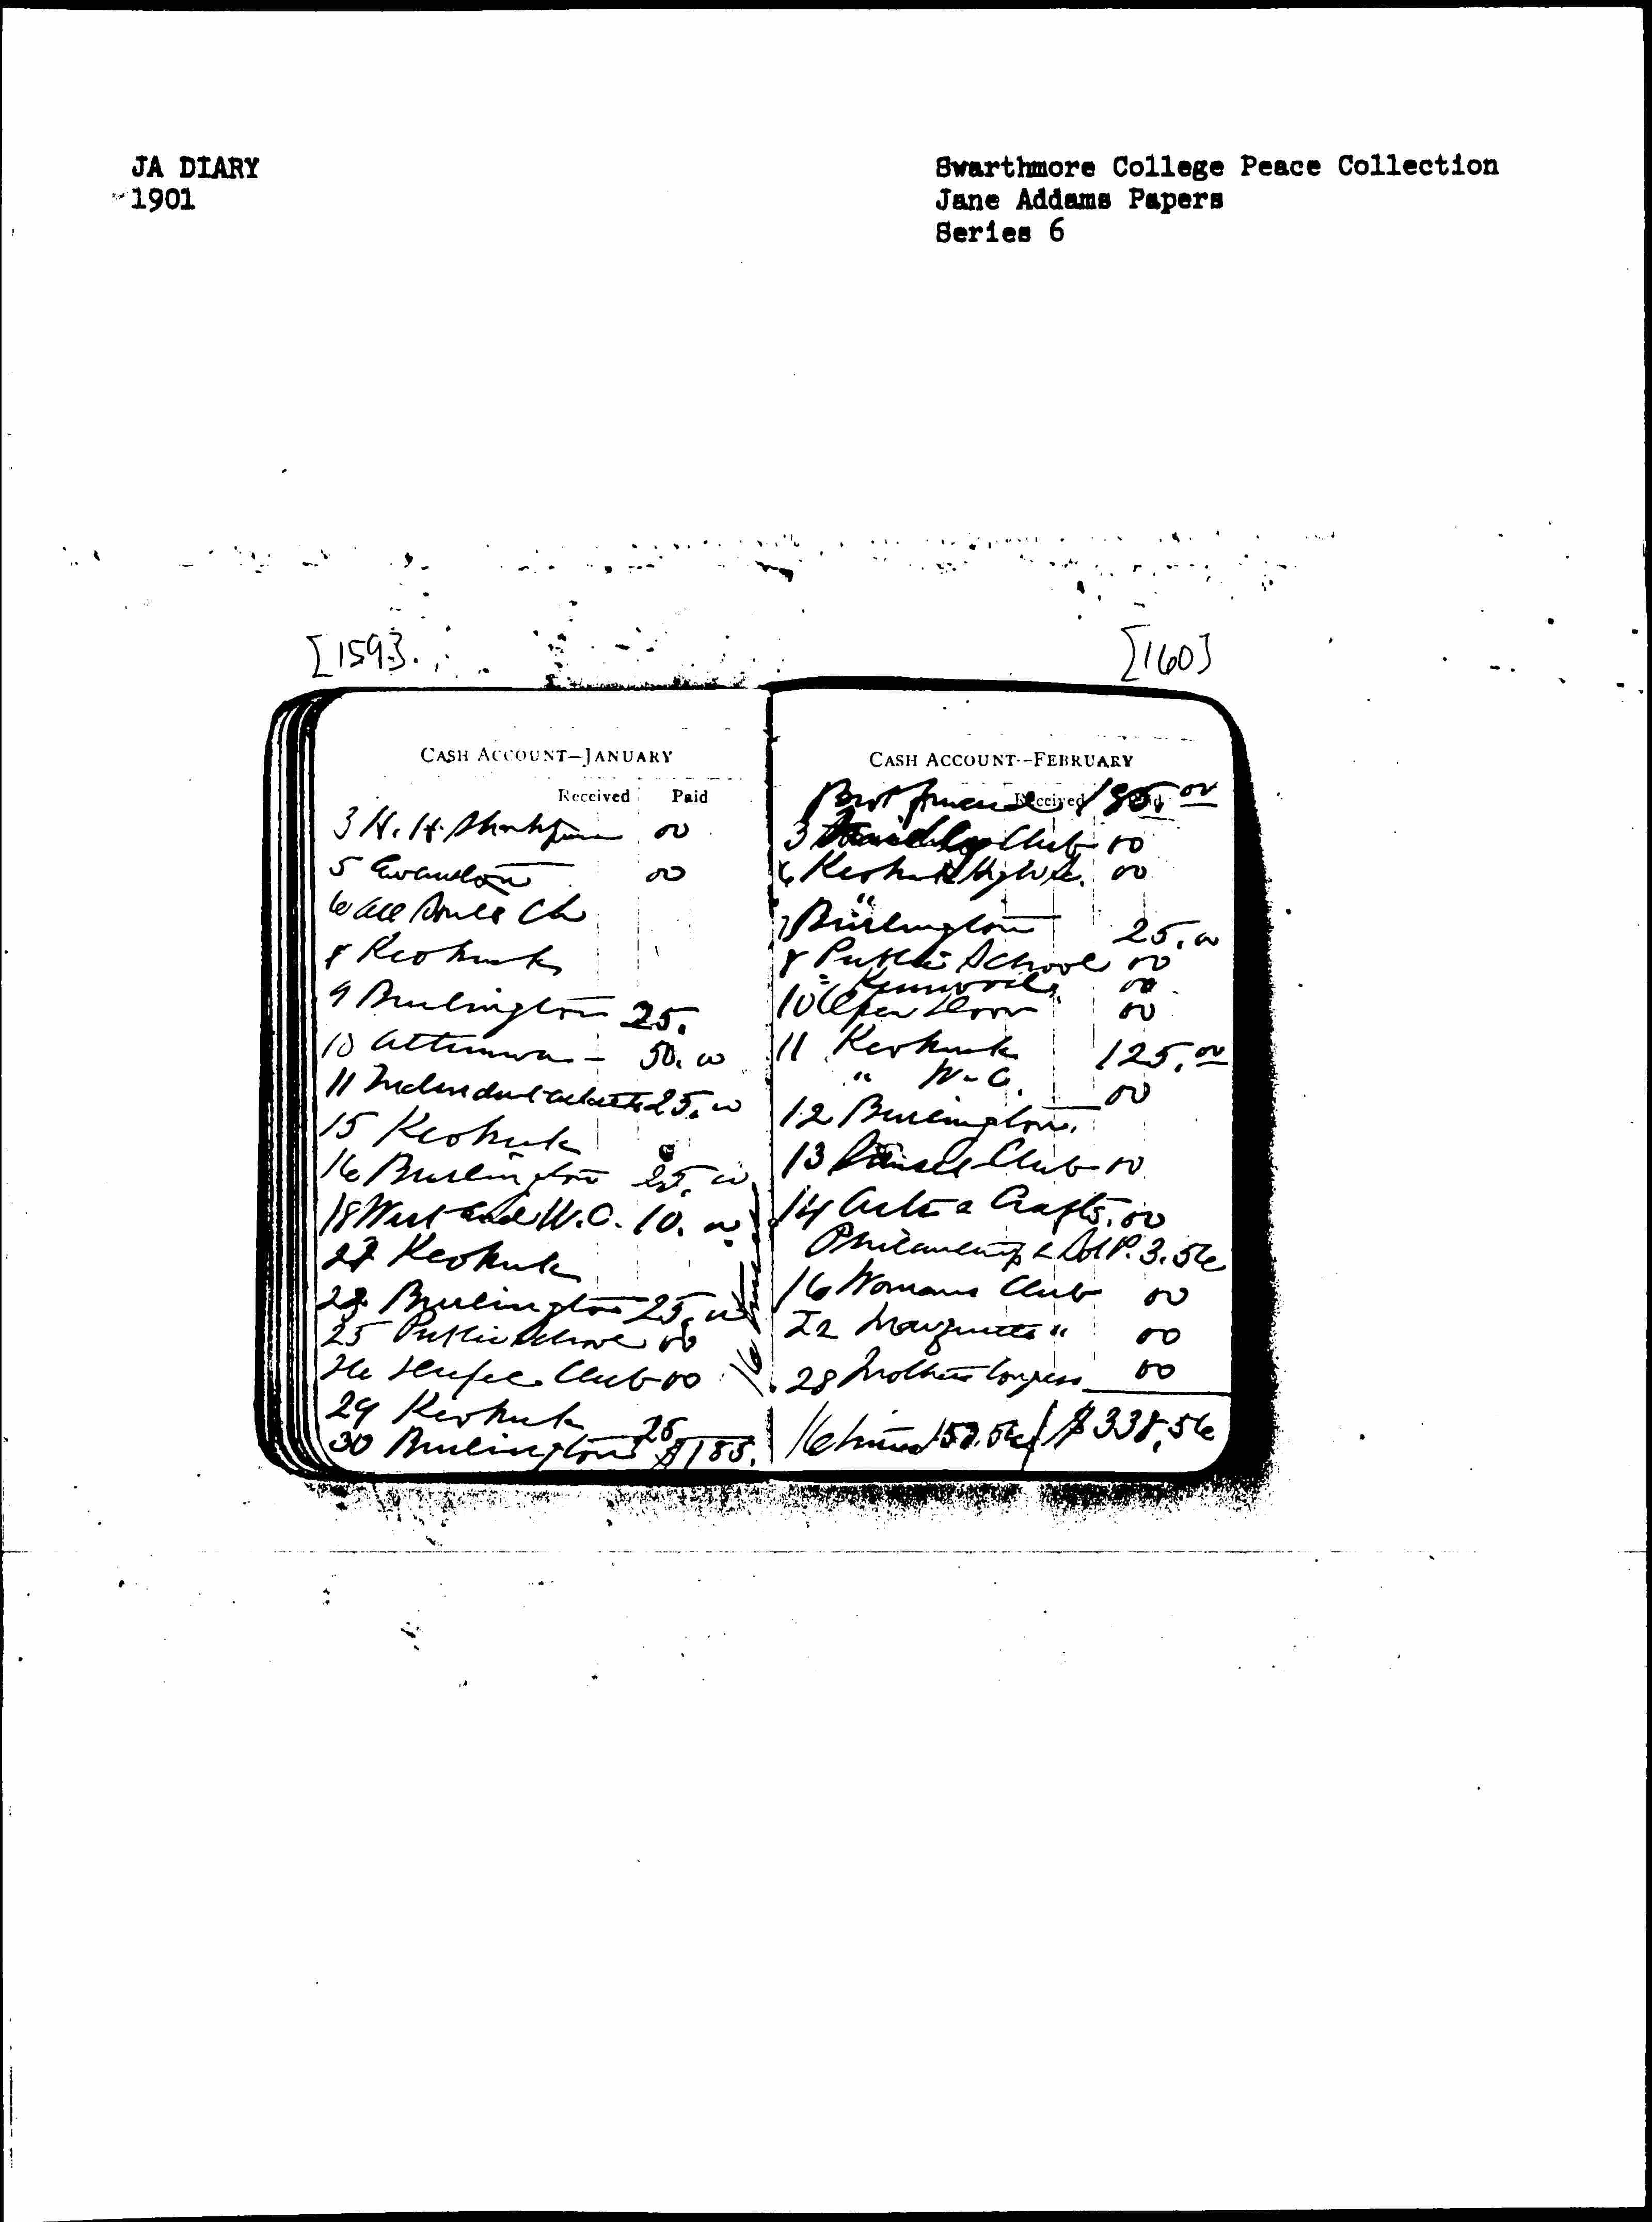 JA DIARY
1901
Swarthmore College Peace Collection
Jane Addams Papers
Series 6
[159]
[160]
CASH ACCOUNT—JANUARY
Received Paid
3 H. H. 00
5 Evanston 00
6 All Souls Ch
8 Keokuk
9 Burlington 25.
10 Ottumwa - 50.00
11 25.00
15 Keokuk
16 Burlington 25.00
18 West End W.C. 10.00
Keokuk
Burlington 25.00
25 Public School 00
26 Club 00
29 Keokuk
30 Burlington 25 $185.
16 times
CASH ACCOUNT—FEBRUARY
Received Paid
Brot forward 185.00
3 Club 00
6 Keokuk High Sc. 00
"
7 Burlington 25.00
8 Public School 00
" Kenwood 00
10 Open Door 00
11 Keokuk 125.00
" W-C. 00
12 Burlington
13 Club 00
14 Arts & Crafts. 00
3.56
16 Womans Club 00
22 Marquette " 00
28 Mothers Congress 00
16 times 153.56 / $338.56